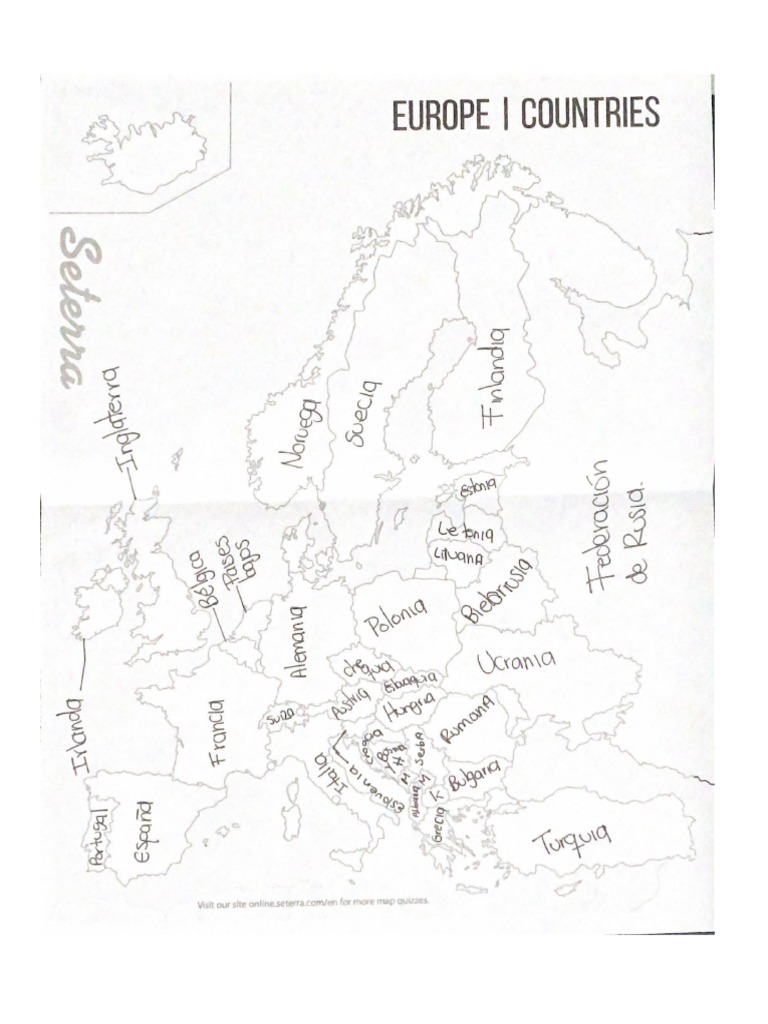 EUROPE | COUNTRIES
Seterra
Inglaterra
Noruega
Suecia
Finlandia
Estonia
Letonia
Lituana
Federación
de Rusia.
Bélgica
Paises
bajos
Irlanda
Alemania
Polonia
Bielorrusia
Ucrania
Che
quia
Eslaquia
Austria
Hungria
Suiza
Francia
Italia
Eslovenia
Croacia
Bosnia
y H
Serbia
M
M
K
Rumania
Bulgaria
Albania
Grecia
Turquia
Portugal
España
Visit our site online.seterra.com/en for more map quizzes.